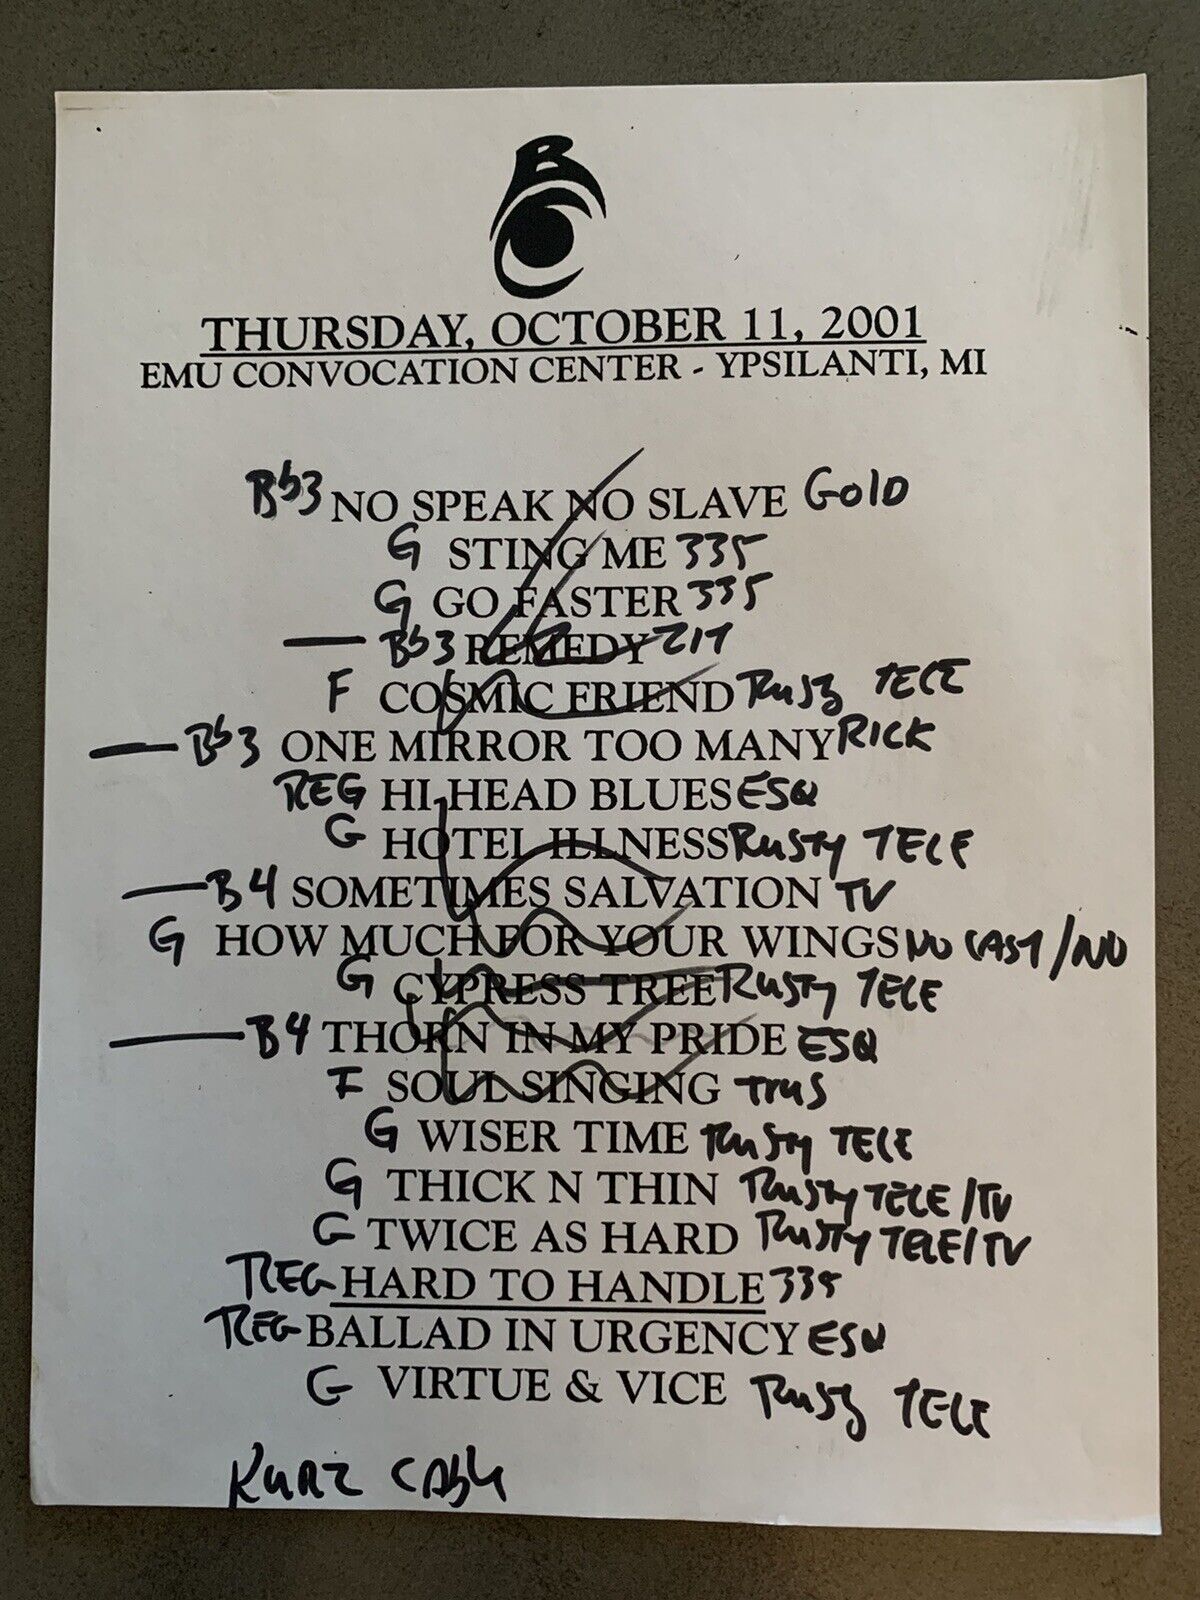 B C
THURSDAY, OCTOBER 11, 2001
EMU CONVOCATION CENTER - YPSILANTI, MI
Bb3 NO SPEAK NO SLAVE GOLD
G STING ME 335
G GO FASTER 335
— Bb3 REMEDY
F COSMIC FRIEND Rusty TELE
— Bb3 ONE MIRROR TOO MANY RICK
REG HI HEAD BLUES ESQ
G HOTEL ILLNESS Rusty TELE
— B4 SOMETIMES SALVATION TV
G HOW MUCH FOR YOUR WINGS NO CAST / NO
G CYPRESS TREE Rusty TELE
— B4 THORN IN MY PRIDE ESQ
F SOUL SINGING
G WISER TIME Rusty TELE
G THICK N THIN Rusty TELE / TV
G TWICE AS HARD Rusty TELE / TV
REG HARD TO HANDLE 335
REG BALLAD IN URGENCY ESQ
G VIRTUE & VICE Rusty TELE
KURZ